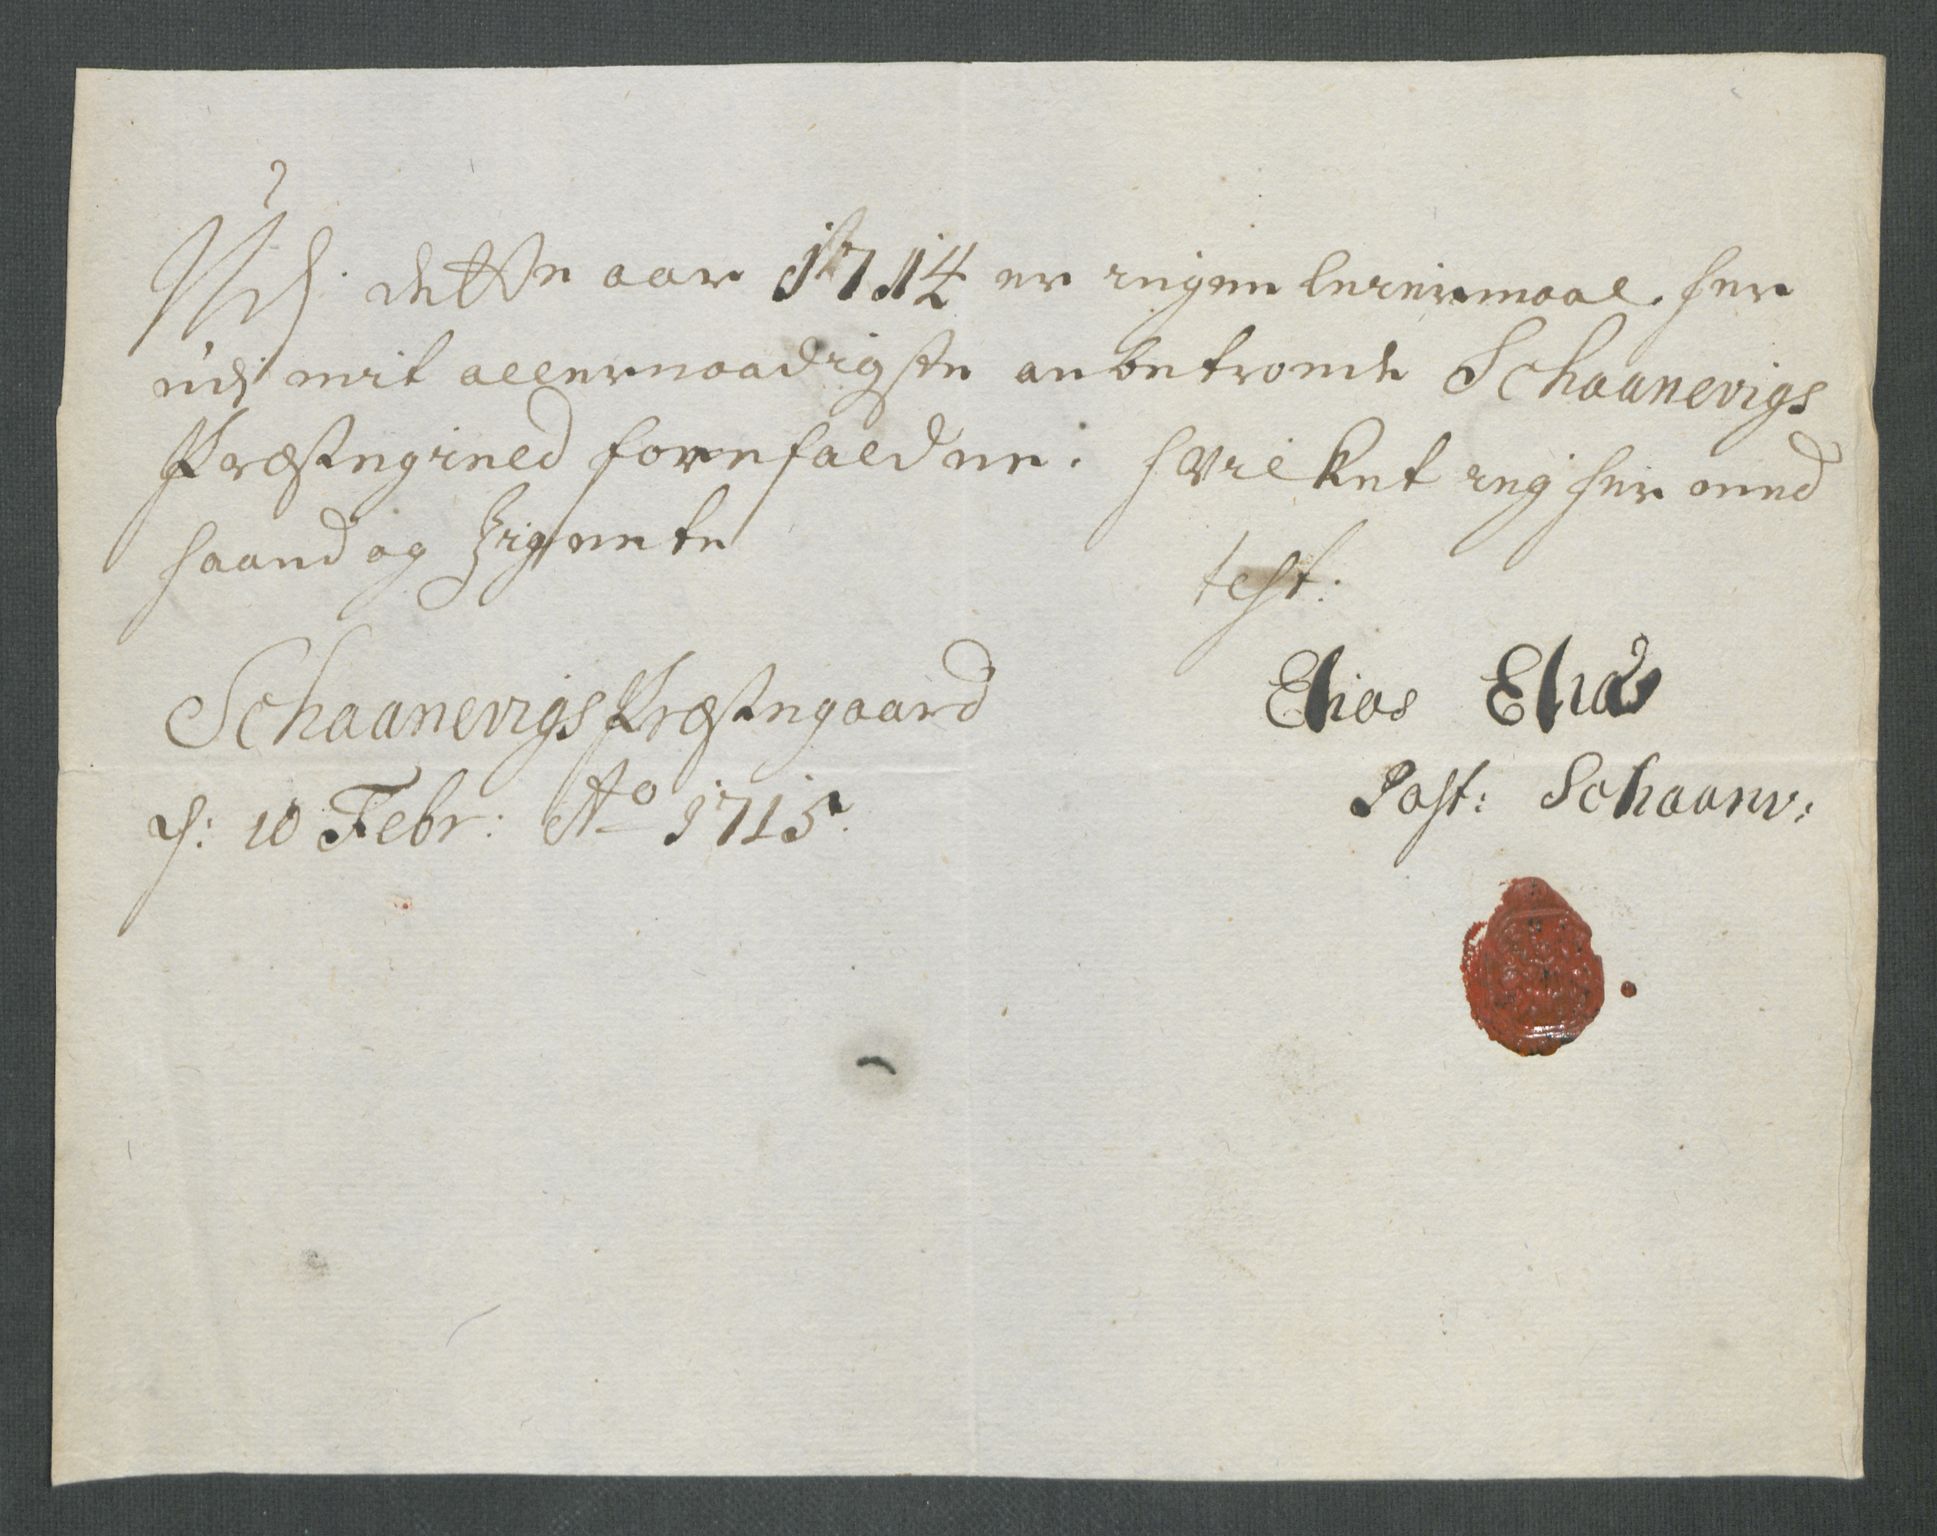 Udj dette aar 1714 er ingen leiermaal her
udj mit allernaadigste anbetroede Schaanevigs
Præstegield forrefaldne. hvilket ieg her med
haand og Zignete
test:
Schaanevigs Præstegaard
d: 10 Febr: Ao 1715.
Elias
Past: Schaanv: